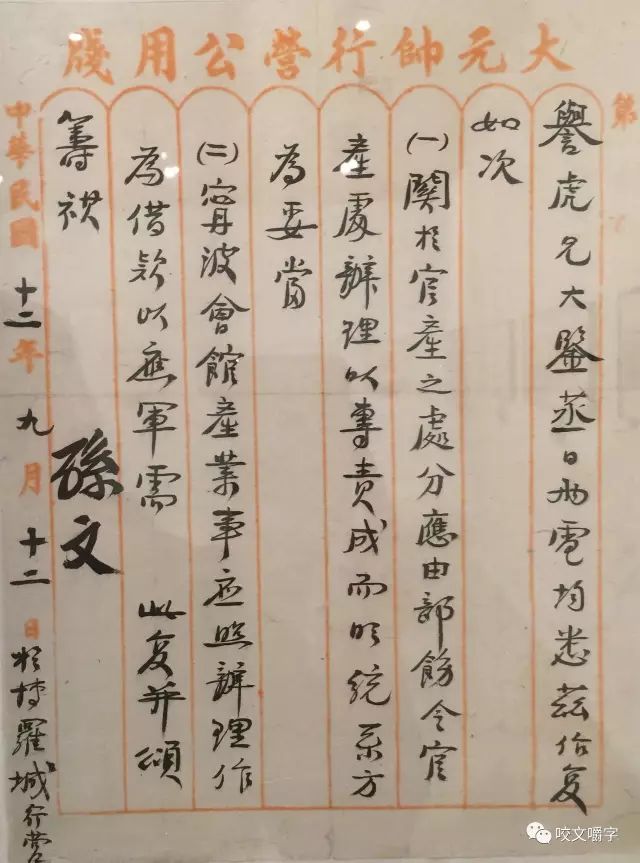 大元帥行營公用牋
第
譽虎兄大鑒蒸日兩電均悉茲复
如次
㈠關於官產之處分應由部飭令官
產處辦理以專責成而明統系方
為妥當
㈡甯波會館產業事应照辦理作
為借款以應軍需 此复并頌
籌祺 孫文
中華民國十二年九月十二日於博羅城行營
咬文嚼字